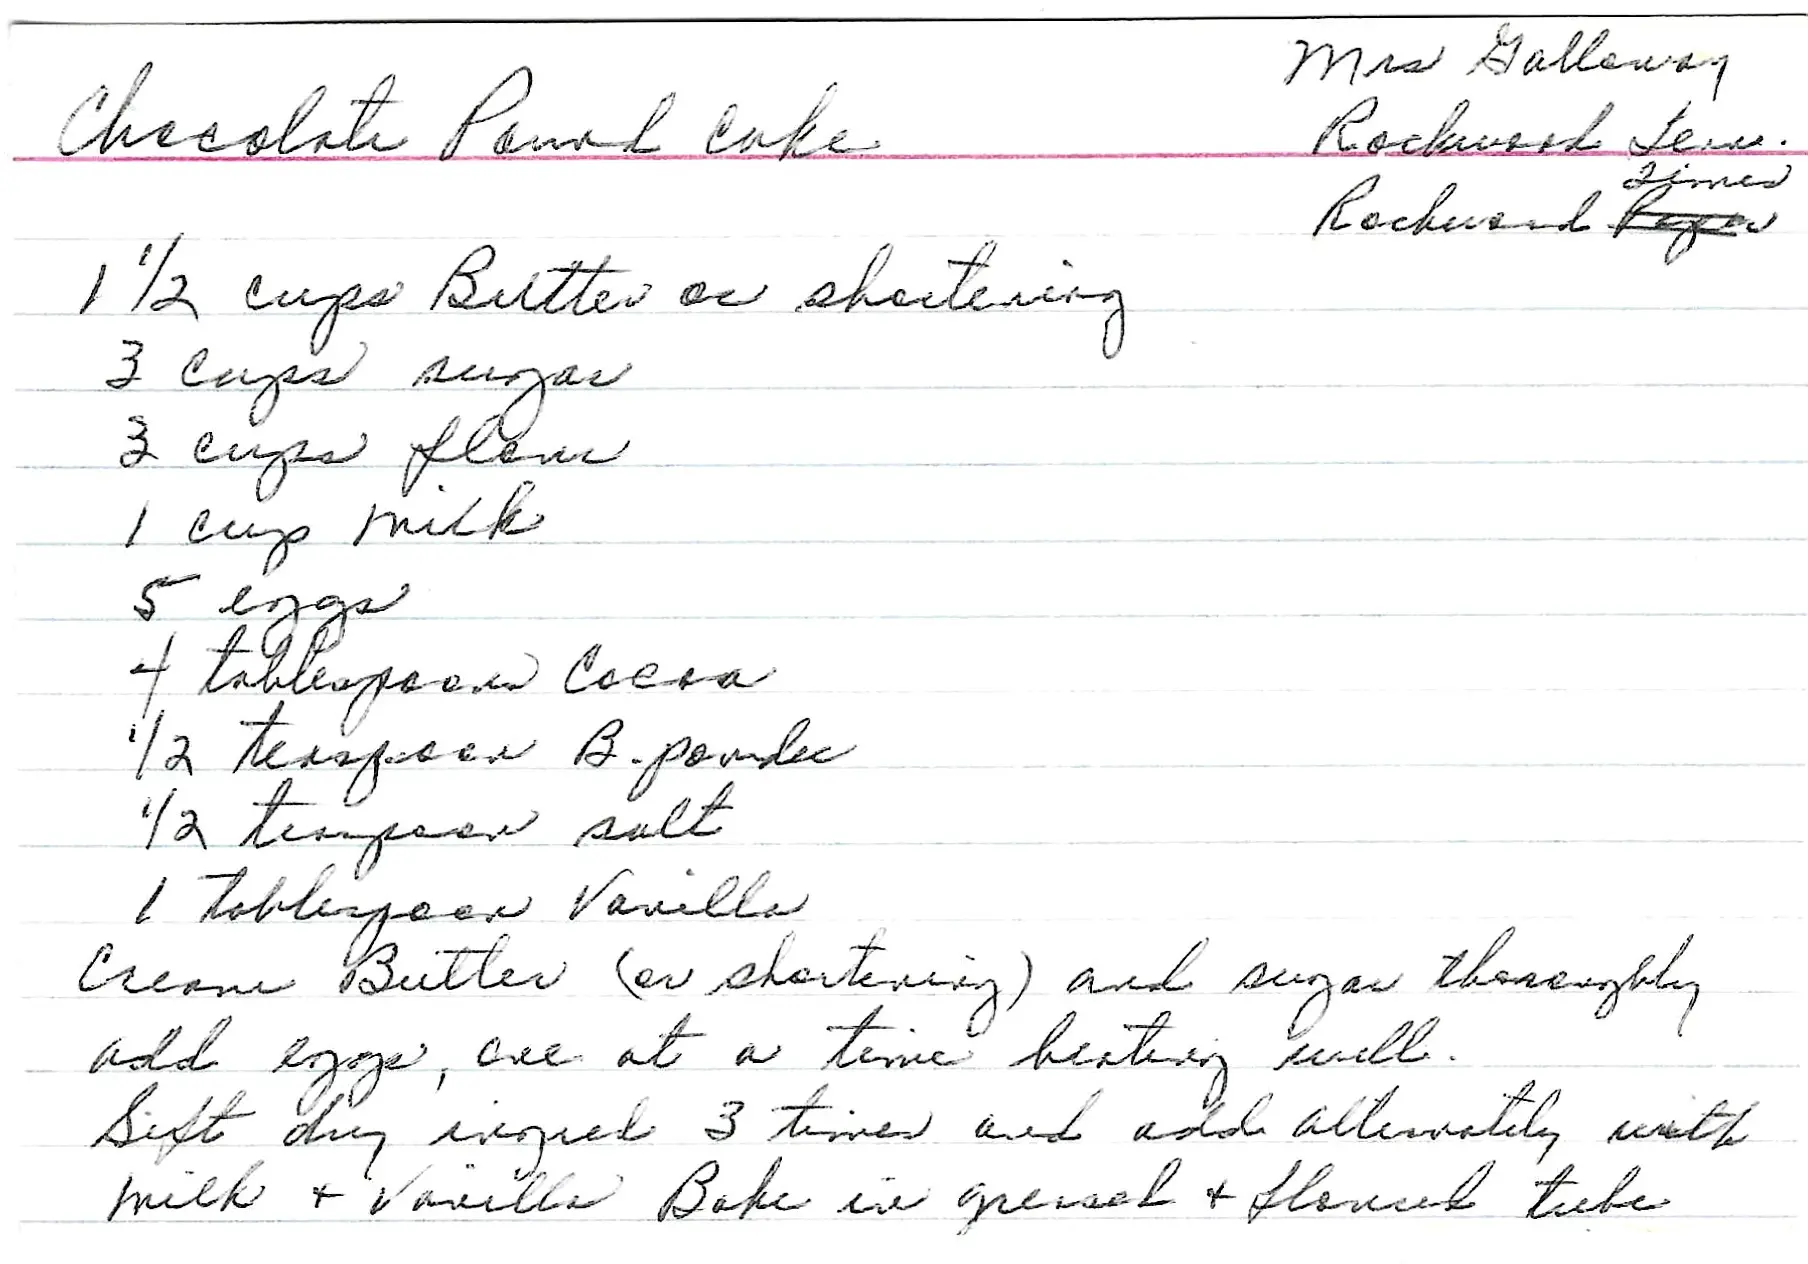 Mrs Galloway
Chocolate Pound Cake
Rockwood Tenn.
Times
Rockwood Paper
1 1/2 cups Butter or shortening
3 cups sugar
3 cups flour
1 cup milk
5 eggs
4 tablespoons Cocoa
1/2 teaspoon B. powder
1/2 teaspoon salt
1 tablespoon Vanilla
Cream Butter (or shortening) and sugar thoroughly
add eggs, one at a time beating well.
Sift dry ingred 3 times and add alternately with
milk + Vanilla Bake in greased + floured tube